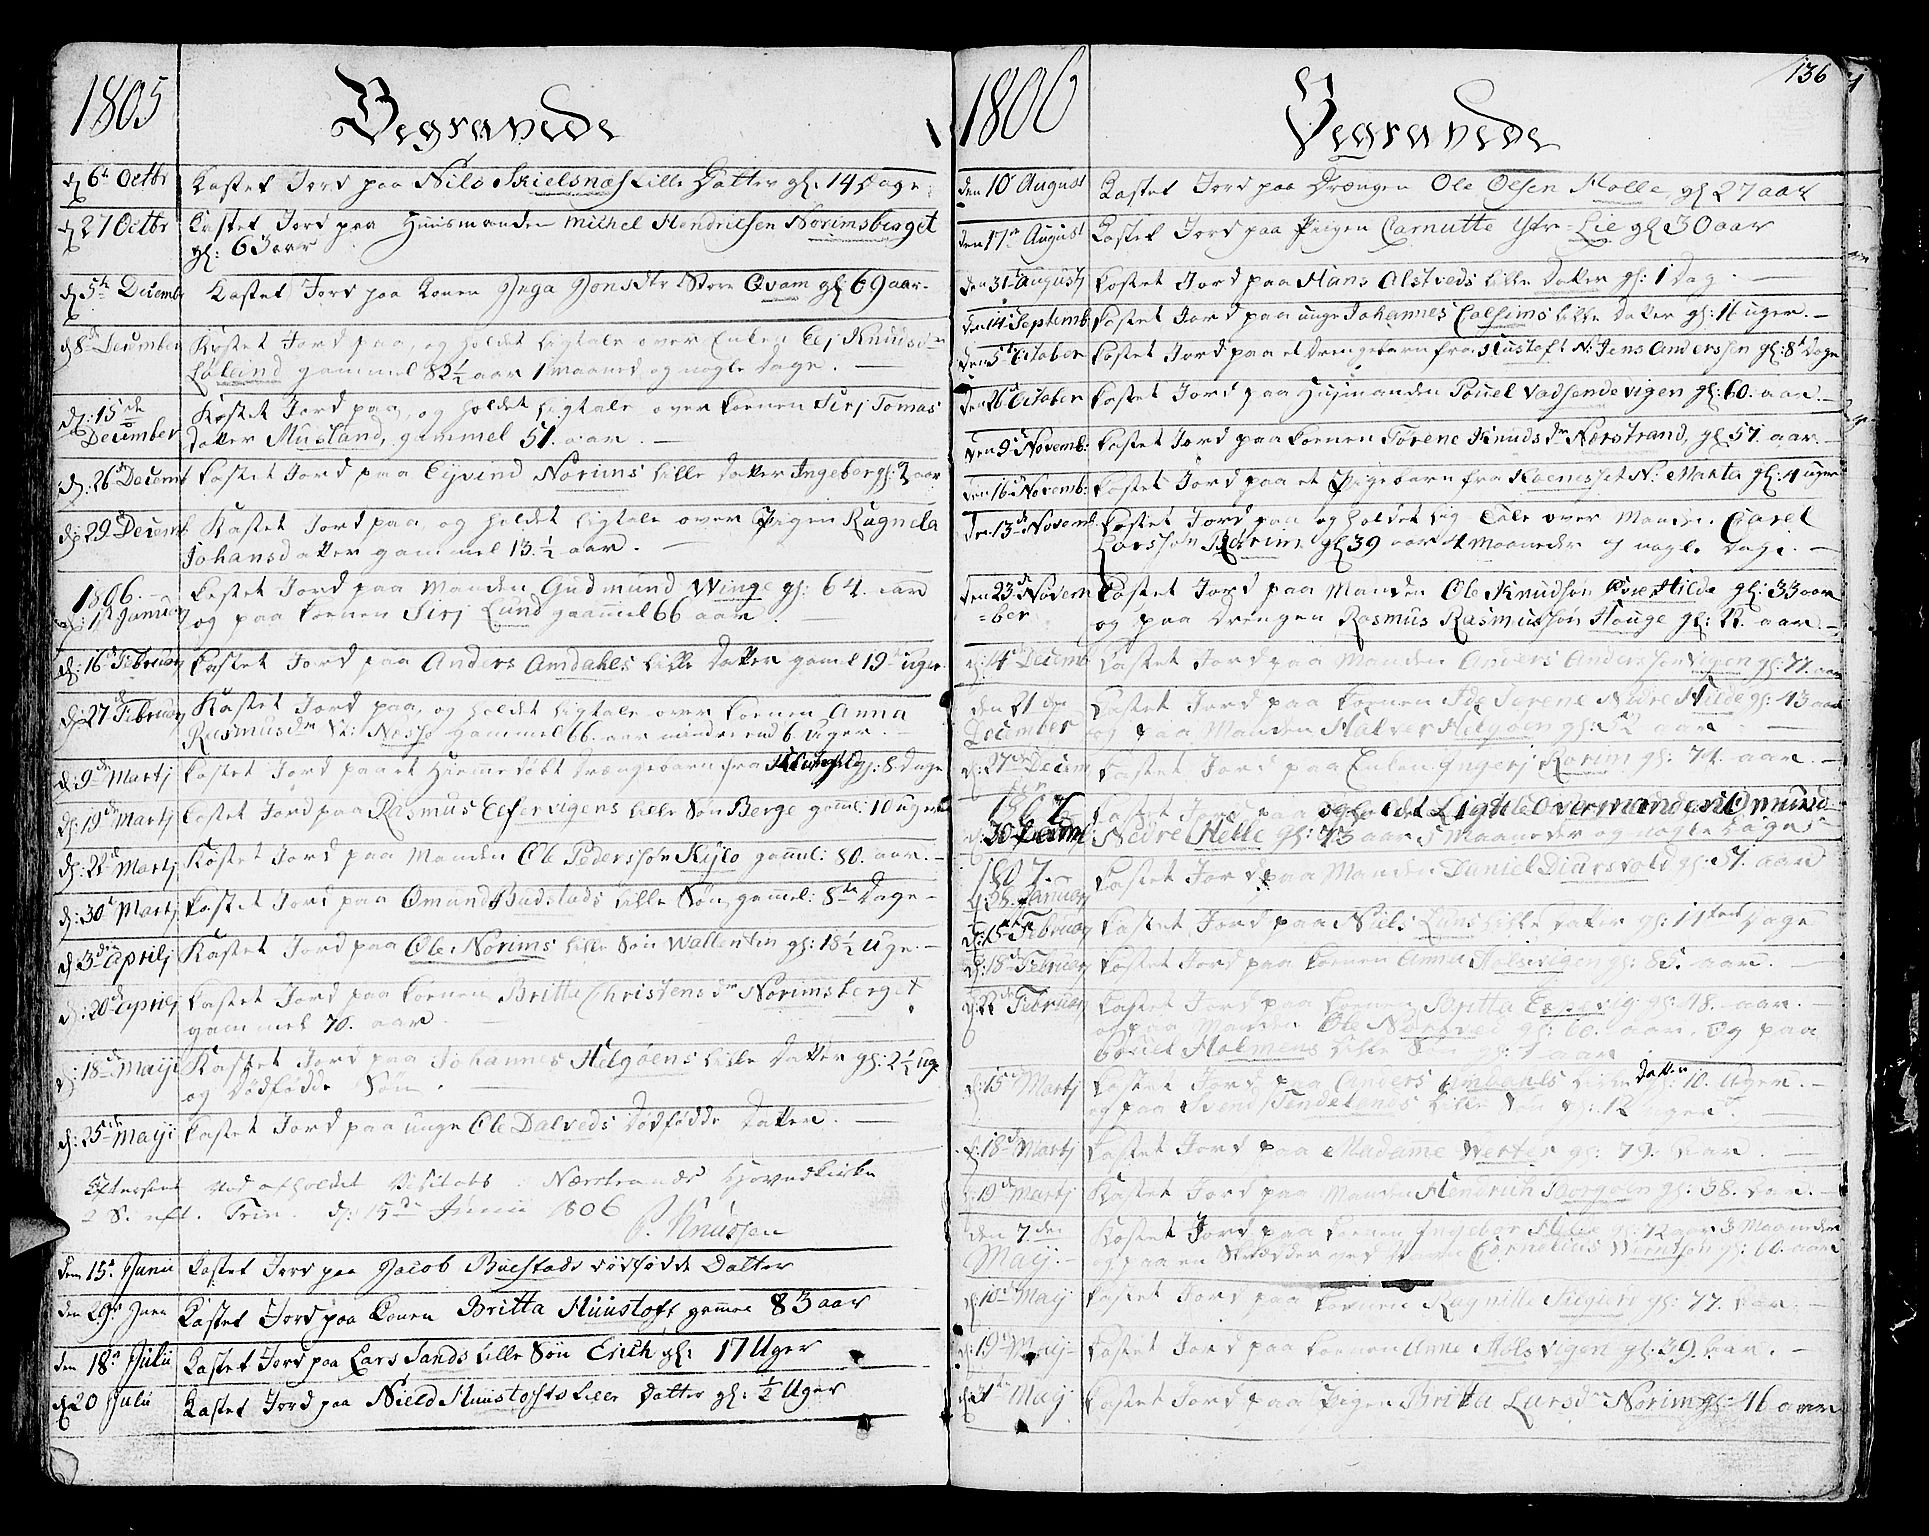 1805
Begravede
d 6te Octbr Kastet Jord paa Nils Skielsnæs Lille Datter gl. 14 Dage
d 27 Octbr Kastet Jord paa Huusmanden Michel Hendricsen Norimsberget
gl: 63 aar
d 5te Decembr Kastet Jord paa Konen Inga Jonsdtr Store Qvam gl 69 aar.
d 8de December Kastet Jord paa, og holdet Ligtale over Enken Knudsdr
gammel 82½ aar 1 maaned og nogle Dage.
d: 15de December Kastet Jord paa, og holdet Ligtale over Konen Sirj Tomas
datter Musland, gammel 51. aar.
d: 26de Decemb Kastet Jord paa Eyvind Norims Lille Datter Ingebor gl: aar
d: 29 Decemb Kastet Jord paa, og holdet Ligtale over Pigen Ragnela
Johansdatter gammel 13.½ aar.
1806.
d: 1te Januarj Kastet Jord paa Manden Gudmund Winge gl: 64. aar
og paa Konen Sirj Lund gammel 66 aar.
d: 16de Februarj Kastet Jord paa Anders Amdahls Lille Datter gamel 19 Uger
d: 27de Februarj Kastet Jord paa, og holdet Ligtale over Konen Anna
Rasmusdr gammel 66. aar mindre end 6 Uger.
d: 9de Martj Kastet Jord paa et Hiemmedøbt Drængebarn fra gl: 8 Dage
d: 19de Martj Kastet Jord paa Rasmus Elfervigens Lille Søn Berge gamel: 10 Uger
d: 22de Martj Kastet Jord paa Manden Ole Pederssøn gamel: 80. aar.
d: 30te Martj Kastet Jord paa Omund Budstads Lille Søn, gammel: 8te Dage
d: 3die Aprilj Kastet Jord paa Ole Norims Lille Søn Wallentin gl: 15½ Uge.
d: 20de Aprilj Kastet Jord paa Konen Britta Christensdr Norimsberget
gammel 70. aar.
d: 18de Maji Kastet Jord paa Johannes Helgøens Lille Datter gl: 2½ Uge
og dødfødde Søn.
d: 25de Maji Kastet Jord paa unge Ole Dalveds dødfødde Datter.
Efterseet ved afholdet Visitats i Nærstrands Hovedkirke
2 S. eft. Trin. d: 15de Junii 1806
Knudssen
den 15de Junii Kastet Jord paa Jacob Buestads dødfødde Datter
den 29de Juni Kastet Jord paa Konen Britta Huustoft gamel 83 aar
den 18de Julii Kastet Jord paa Lars Sands Lille Søn Erich gl: 17 Uger
d 20 Julii Kastet Jord paa Nield Huustofts Lille Datter gl: ½ Uger
1806
Begravede
136
den 10 August Kastet Jord paa Drængen Ole Olsen Holle, gl 27 aar
den 17de August Kastet Jord paa Pigen Lie gl 30 aar
den 31te Augustj Kastet Jord paa Hans Alstveds Lille Datter gl: 1 Dag.
den 14de Septemb Kastet Jord paa unge Johannes Lille Datter gl: 16 uger.
den 5te October Kastet Jord paa et Drengebarn fra Hustoft N: Jens Anderssen gl: 8te Dage
den 26de October Kastet Jord paa Husmanden Pouel Vadsendevigen gl: 60. aar.
den 9de Novemb: Kastet Jord paa Konen Torene Knudsdr Nærstrand, gl 57. aar.
den 16de Novemb: Kastet Jord paa et Pigebarn fra N: Marta gl: 4 uger
den 13de Novemb Kastet Jord paa og holdet Lig Tale over Manden Carel
Larssøn Rørim gl 39 aar 4 Maaneder og nogle Dage.
den 23de Novem
=ber Kastet Jord paa Manden Ole Knudsøn Øvre Hilde gl: 33 aar
og paa Drengen Rasmus Rasmussøn Houge gl: 22. aar.
d: 14de Decemb Kastet Jord paa Manden Anders Anderssøn Vigen gl: 77. aar
den 21de December Kastet Jord paa Konen Serene Nedre Hilde gl: 43 aar
og paa Manden Halver Helgøen gl: aar
d: 27de Decem Kastet Jord paa Enken Ingerj Rørim gl: 74. aar.
d: 30 Kastet Jord paa og holdet Ligtale over manden Omund
Nedre Helle gl: 73 aar 5 Maaneder og nogle Dage
1807.
Januarj Kastet Jord paa Manden Daniel Diarsvold gl: 51. aar
d: Februarj Kastet Jord paa Nils Lunds Lille Datter gl: 11 Dage
d: 18de Februarj Kastet Jord paa Konen Anna Holsvigen gl: 85. aar.
d: 22de Februarj Kastet Jord paa Konen Britta Espevig gl: 78. aar.
og paa Manden Ole gl: 60. aar. og paa
Poviel Holmens Lille Søn gl: 1 aar
d: 15de Martj Kastet Jord paa Anders Amdahls Lille Datter 10. Uger.
og paa Svend Lille Søn gl: 12 uger.
d: 18de Martj Kastet Jord paa Madame Werter gl: 79. aar.
d: 19de Martj Kastet Jord paa Manden Hendrich Borgøen gl: 38. aar.
den 7den Maij. Kastet Jord paa Konen Ingebor gl: 72 aar 3 Maaneder
og paa en Skræder ved Navn Cornelius Berntsøn gl: 60. aar
d: 10de Maij Kastet Jord paa Konen Ragnilla gl: 77. aar.
d: 19de Maij Kastet Jord paa Konen Anne Holsvigen gl: 39. aar.
d: 21de Maij Kastet Jord paa Pigen Britta Larsdr Norim gl: 46 aar